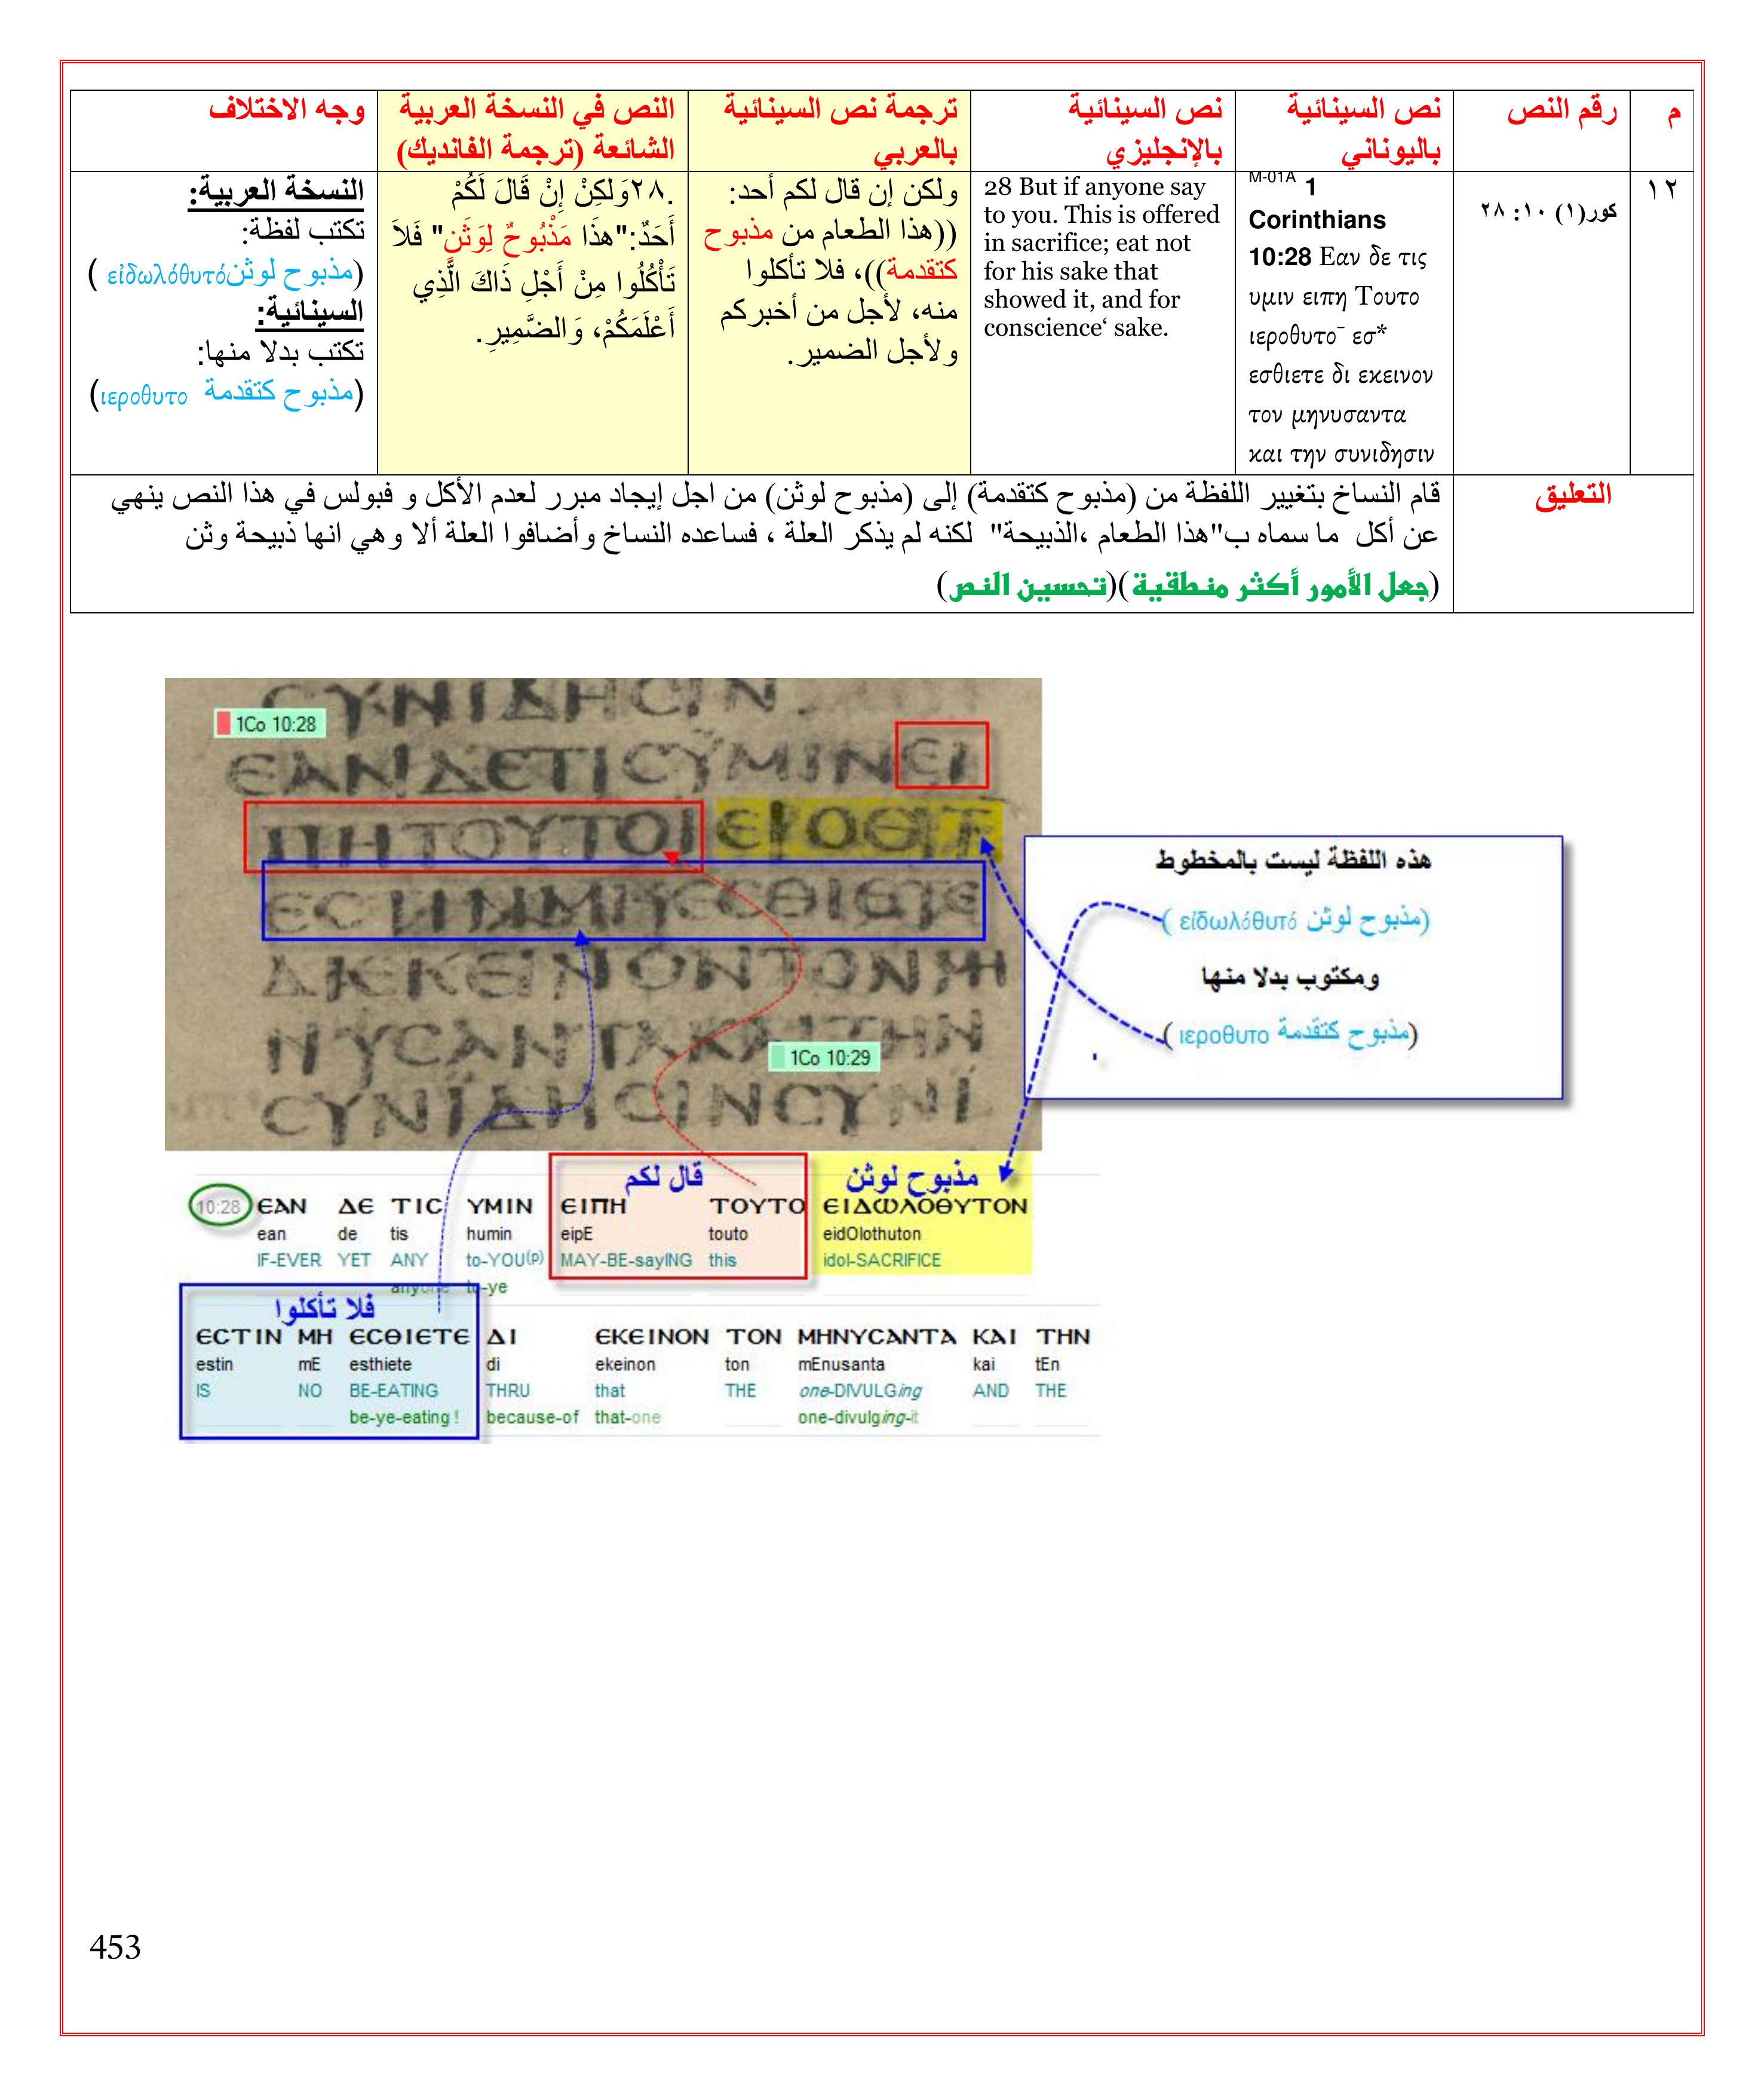 م
رقم النص
نص السينائية
باليوناني
نص السينائية
بالإنجليزي
ترجمة نص السينائية
بالعربي
النص في النسخة العربية
الشائعة (ترجمة الفانديك)
وجه الاختلاف
١٢
كور(١) ١٠: ٢٨
M-01A 1
Corinthians
10:28 Εαν δε τις
υμιν ειπη Τουτο
ιεροθυτο¯ εσ*
εσθιετε δι εκεινον
τον μηνυσαντα
και την συνιδησιν
28 But if anyone say
to you. This is offered
in sacrifice; eat not
for his sake that
showed it, and for
conscience‘ sake.
ولكن إن قال لكم أحد:
((هذا الطعام من مذبوح
كتقدمة))، فلا تأكلوا
منه، لأجل من أخبركم
ولأجل الضمير.
.٢٨وَلكِنْ إِنْ قَالَ لَكُمْ
أَحَدٌ:"هذَا مَذْبُوحٌ لِوَثَنٍ" فَلاَ
تَأْكُلُوا مِنْ أَجْلِ ذَاكَ الَّذِي
أَعْلَمَكُمْ، وَالضَّمِيرِ.
النسخة العربية:
تكتب لفظة:
(مذبوح لوثنεἰδωλόθυτό )
السينائية:
تكتب بدلا منها:
(مذبوح كتقدمة ιεροθυτο)
التعليق
قام النساخ بتغيير اللفظة من (مذبوح كتقدمة) إلى (مذبوح لوثن) من اجل إيجاد مبرر لعدم الأكل و فبولس في هذا النص ينهي
عن أكل ما سماه ب"هذا الطعام ،الذبيحة" لكنه لم يذكر العلة ، فساعده النساخ وأضافوا العلة ألا وهي انها ذبيحة وثن
(جعل الأمور أكثر منطقية)(تحسين النص)
CYNIΔHCIN
1Co 10:28
ЄANΔЄTICYMINЄI
ΠHTOYTOI
ЄC
ЄCΘIЄTЄ
ΔIЄKЄINONTONMH
NYCANTAKAITHN
1Co 10:29
CYNIΔHCINCYNI
هذه اللفظة ليست بالمخطوط
(مذبوح لوثن εἰδωλόθυτό )
ومكتوب بدلا منها
(مذبوح كتقدمة ιεροθυτο )
قال لكم
مذبوح لوثن
10:28 ЄAN ΔЄ TIC YMIN ЄIΠH TOYTO ЄIΔωΛOΘYTON
ean de tis humin eipE touto eidOlothuton
IF-EVER YET ANY to-YOU(P) MAY-BE-sayING this idol-SACRIFICE
anyone to-ye
فلا تأكلوا
ЄCTIN MH ЄCΘIЄTЄ ΔI ЄKЄINON TON MHNYCANTA KAI THN
estin mE esthiete di ekeinon ton mEnusanta kai tEn
IS NO BE-EATING THRU that THE one-DIVULGing AND THE
be-ye-eating ! because-of that-one one-divulging-it
453